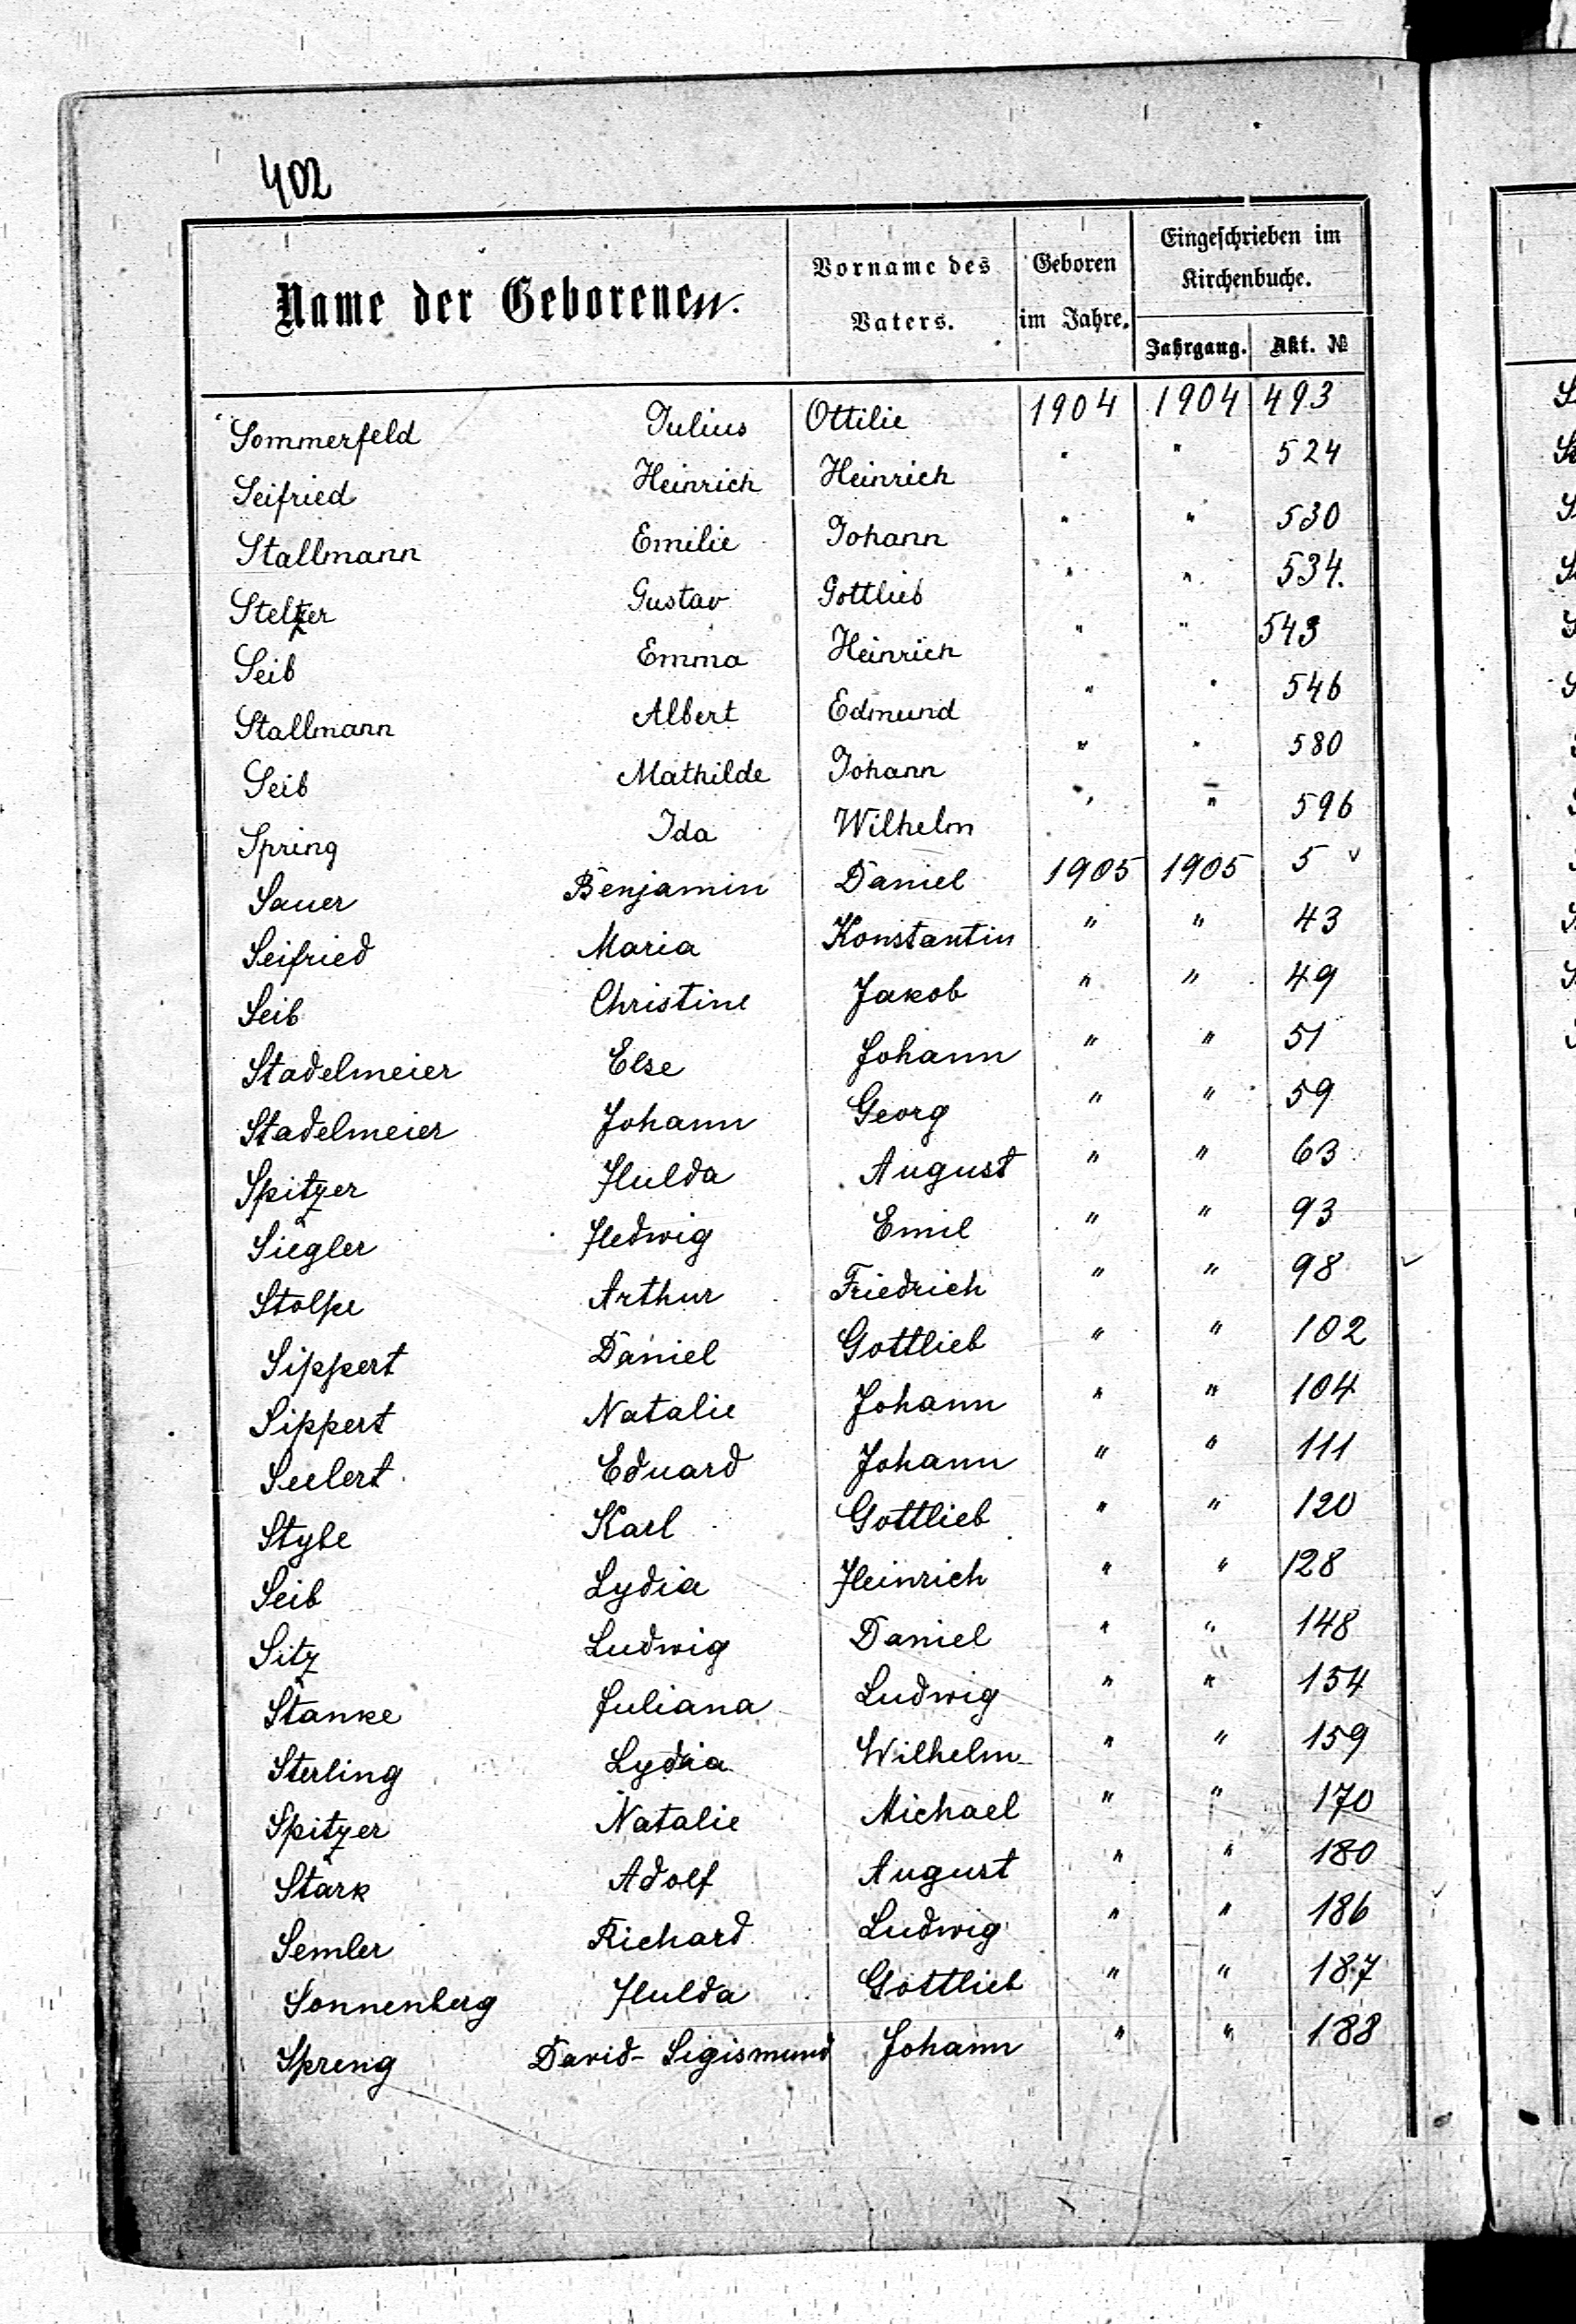 402
Name der Geborenen.
Vorname des Vaters.
Geboren im Jahre.
Eingeschrieben im Kirchenbuche.
Jahrgang. Akt. №
Sommerfeld Julius Ottilie 1904 1904 493
Seifried Heinrich Heinrich " " 524
Stallmann Emilie Johann " " 530
Stelzer Gustav Gottlieb " " 534.
Seib Emma Heinrich " " 543
Stallmann Albert Edmund " " 546
Seib Mathilde Johann " " 580
Spring Ida Wilhelm " " 596
Sauer Benjamin Daniel 1905 1905 5 ✓
Seifried Maria Konstantin " " 43
Seib Christine Jakob " " 49
Stadelmeier Else Johann " " 51
Stadelmeier Johann Georg " " 59
Spitzer Hulda August " " 63
Siegler Hedwig Emil " " 93
Stolpe Arthur Friedrich " " 98 ✓
Sippert Daniel Gottlieb " " 102
Sippert Natalie Johann " " 104
Seelert Eduard Johann " " 111
Stybe Karl Gottlieb " " 120
Seib Lydia Heinrich " " 128
Sitz Ludwig Daniel " " 148
Stanke Juliana Ludwig " " 154
Sterling Lydia Wilhelm " " 159
Spitzer Natalie Michael " " 170
Stark Adolf August " " 180
Semler Richard Ludwig " " 186
Sonnenberg Hulda Gottlieb " " 187
Spreng David-Sigismund Johann " " 188